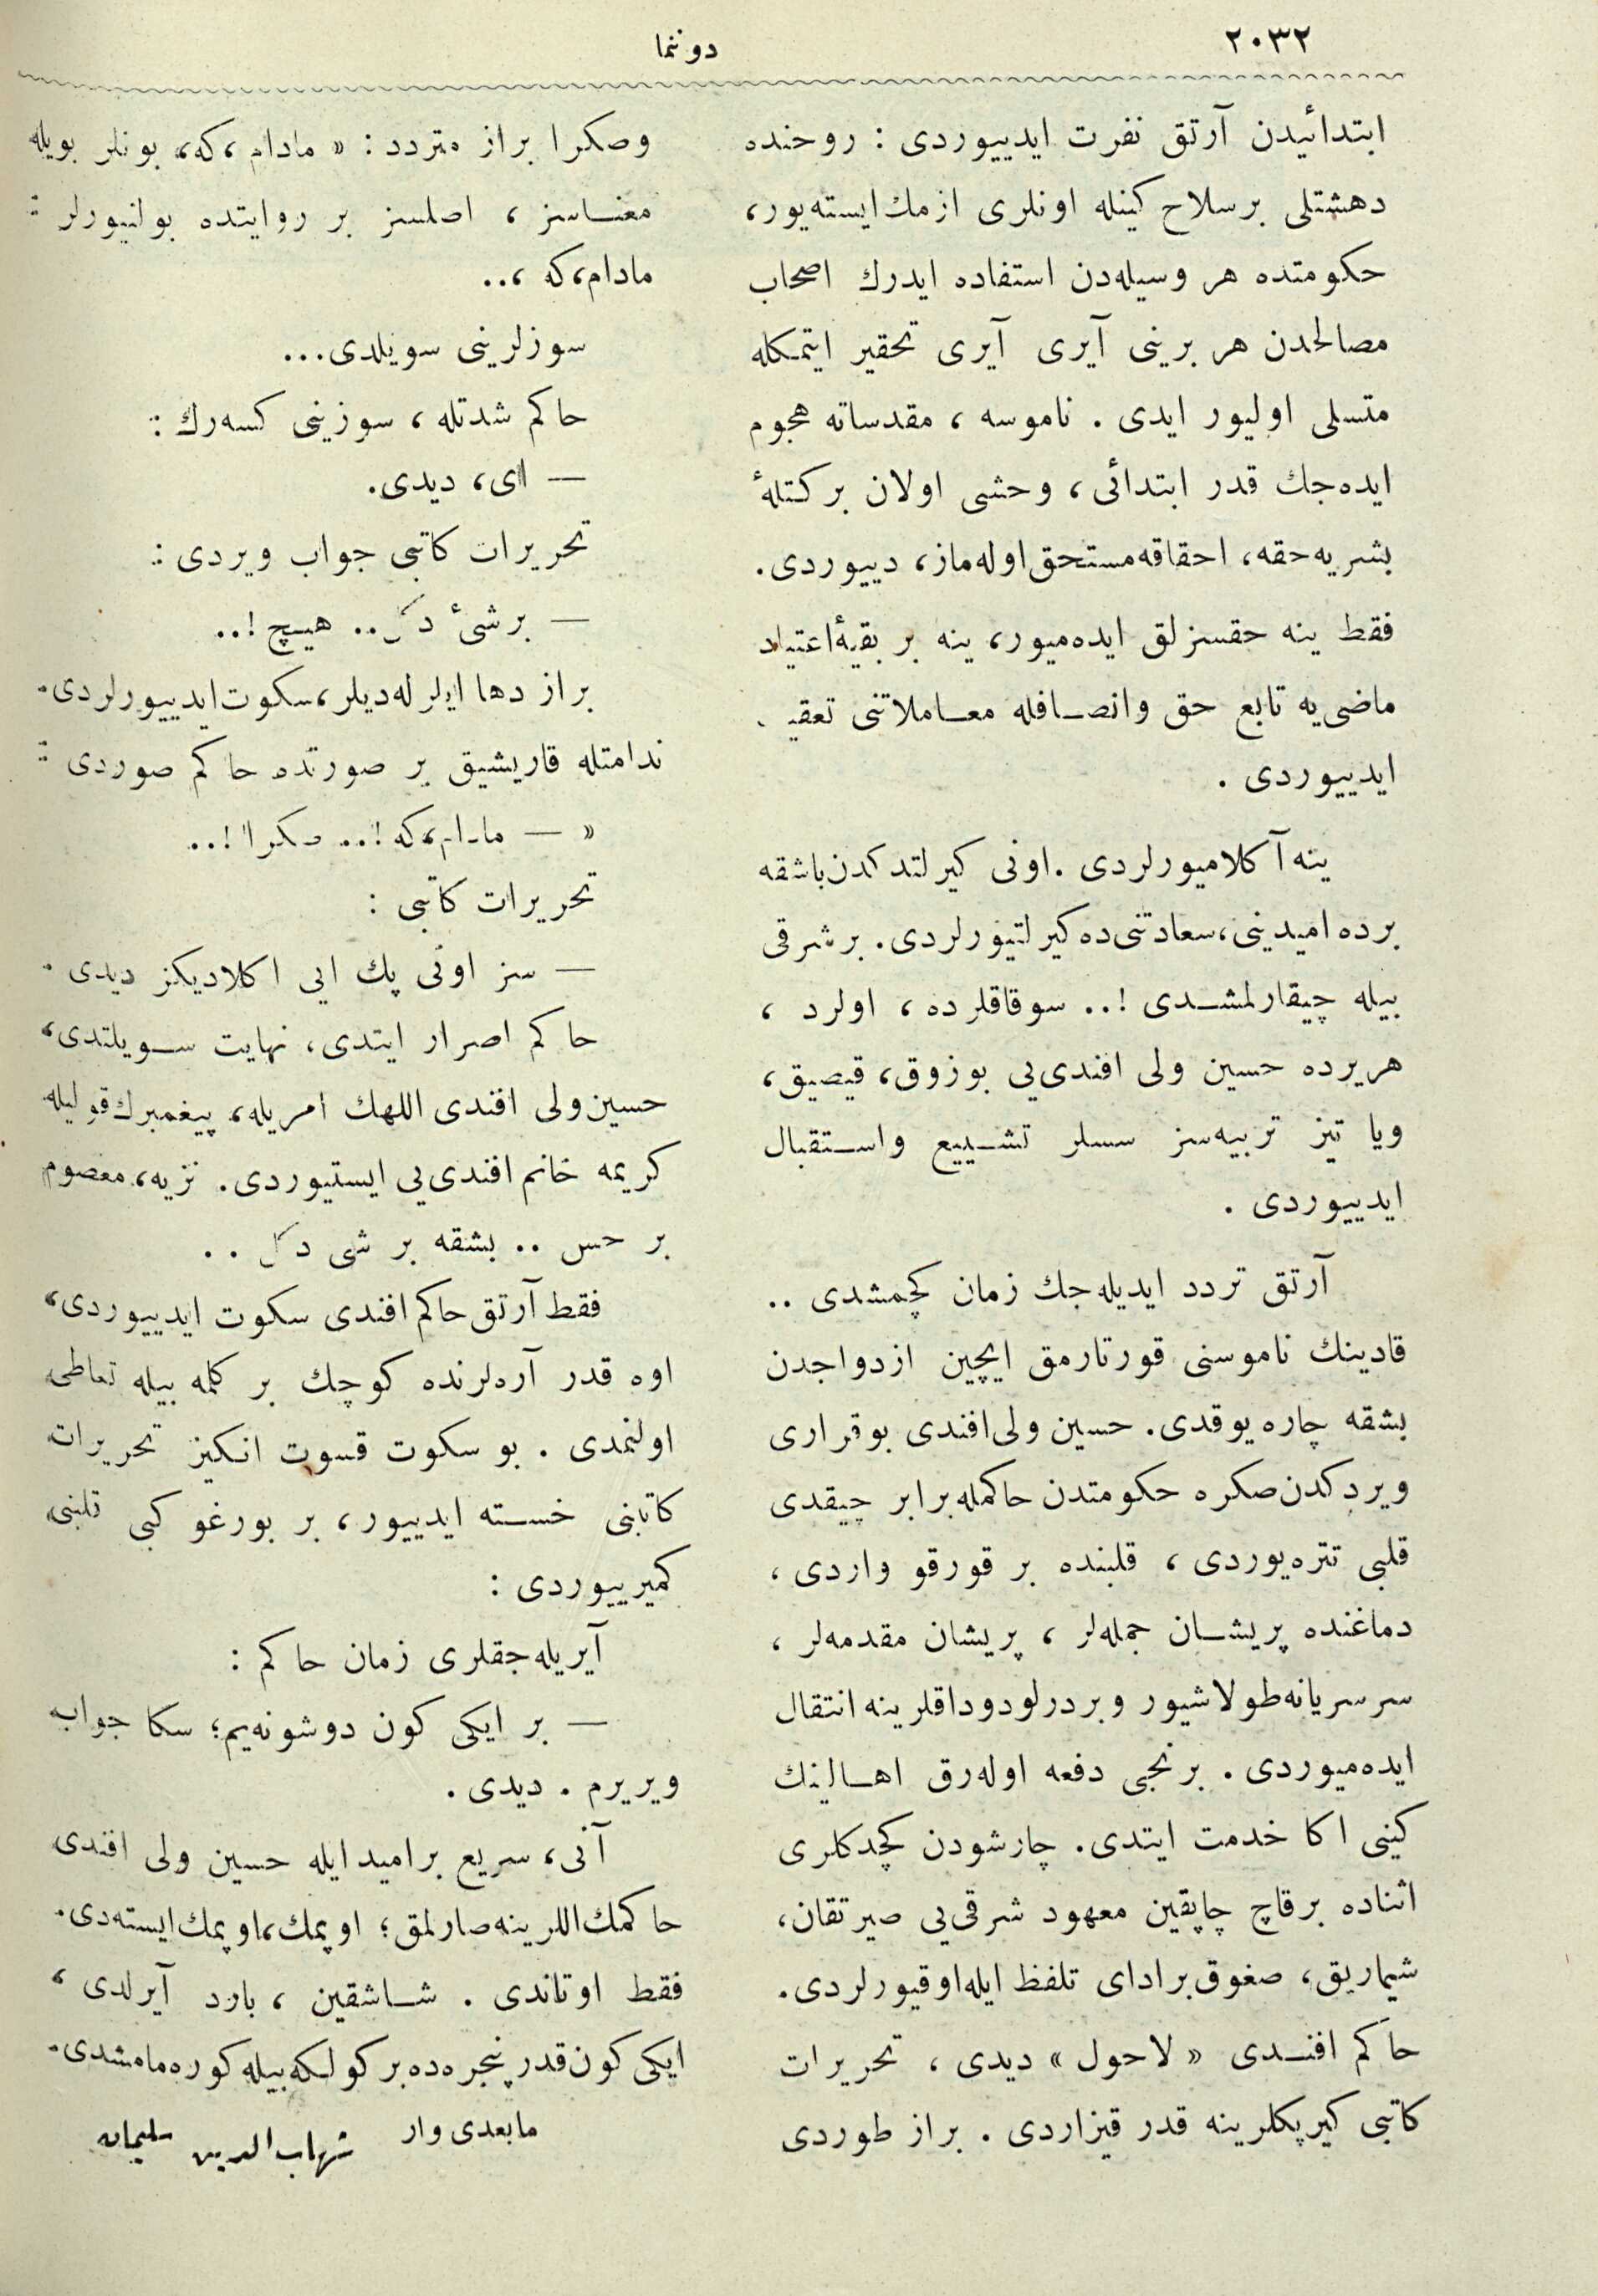 ٢٠٣٢
دوننما
ابتدائیدن آرتق نفرت ایدییوردی : روحنده
دهشتلی برسلاح کینله اونلری ازمك ایسته‌یور،
حکومتده هر وسیله‌دن استفاده ایدرك اصحاب
مصالحدن هر برینی آیری آیری تحقیر ایتمکله
متسلی اولیور ایدی . ناموسه ، مقدساته هجوم
ایده‌جك قدر ابتدائی، وحشی اولان برکتلهٔ
بشریه حقه، احقاقه مستحق اوله‌ماز، دییوردی.
فقط ینه حقسزلق ایده‌میور، ینه بر بقیهٔ اعتیاد
ماضی‌یه تابع حق وانصافله معاملاتنی تعقیب
ایدییوردی .
ینه آکلامیورلردی . اونی کیرلتدکدن باشقه
برده امیدینی، سعادتنی‌ده کیرلتیورلردی. برشرقی
بیله چیقارلمشدی !.. سوقاقلرده ، اولرد ،
هریرده حسین ولی افندی‌یی بوزوق، قیصیق،
ویا تیز تربیه‌سز سسلر تشییع واستقبال
ایدییوردی .
آرتق تردد ایدیله‌جك زمان کچمشدی ..
قادینك ناموسنی قورتارمق ایچین ازدواجدن
بشقه چاره یوقدی. حسین ولی افندی بوقراری
ویردکدن صکره حکومتدن حاکمله برابر چیقدی
قلبی تتره‌یوردی ، قلبنده بر قورقو واردی ،
دماغنده پریشان جمله‌لر ، پریشان مقدمه‌لر ،
سرسریانه طولاشیور وبردرلو دوداقلرینه انتقال
ایده‌میوردی . برنجی دفعه اوله‌رق اهالینك
کینی اکا خدمت ایتدی. چارشودن کچدکلری
اثناده برقاچ چاپقین معهود شرقی‌یی صیرتقان،
شیماریق، صغوق برادای تلفظ ایله اوقیورلردی.
حاکم افندی « لاحول » دیدی ، تحریرات
کاتبی کیرپکلرینه قدر قیزاردی . براز طوردی
وصکرا براز متردد : « مادام، که، بونلر بویله
معناسز ، اصلسز بر روایتده بولنیورلر :
مادام، که ،..
سوزلرینی سویلدی...
حاکم شدتله ، سوزینی کسه‌رك :
— ای، دیدی.
تحریرات کاتبی جواب ویردی :
— برشیٔ دکل .. هیچ !..
براز دها ایلرله‌دیلر، سکوت ایدییورلردی.
ندامتله قاریشیق بر صورتده حاکم صوردی :
« — مادام، که !.. صکرا !..
تحریرات کاتبی :
— سز اونی پك ایی اکلادیکز دیدی .
حاکم اصرار ایتدی، نهایت سویلتدی،
حسین ولی افندی اللهك امریله، پیغمبرك قولیله
کریمه خانم افندی‌یی ایستیوردی. نزیه، معصوم
بر حس .. بشقه بر شی دکل ..
فقط آرتق حاکم افندی سکوت ایدییوردی،
اوه قدر آره‌لرنده کوچك بر کلمه بیله تعاطی
اولنمدی . بو سکوت قسوت انکیز تحریرات
کاتبنی خسته ایدییور، بر بورغو کبی قلبنی
کمیرییوردی :
آیریله‌جقلری زمان حاکم :
— بر ایکی کون دوشونه‌یم؛ سکا جواب
ویریرم . دیدی .
آنی، سریع برامید ایله حسین ولی افندی
حاکمك اللرینه صارلمق؛ اوپمك، اوپمك ایسته‌دی.
فقط اوتاندی . شاشقین ، بارد آیرلدی ،
ایکی کون قدر پنجره‌ده بر کولکه بیله کوره‌مامشدی.
مابعدی وار
شهاب الدین سلیمان